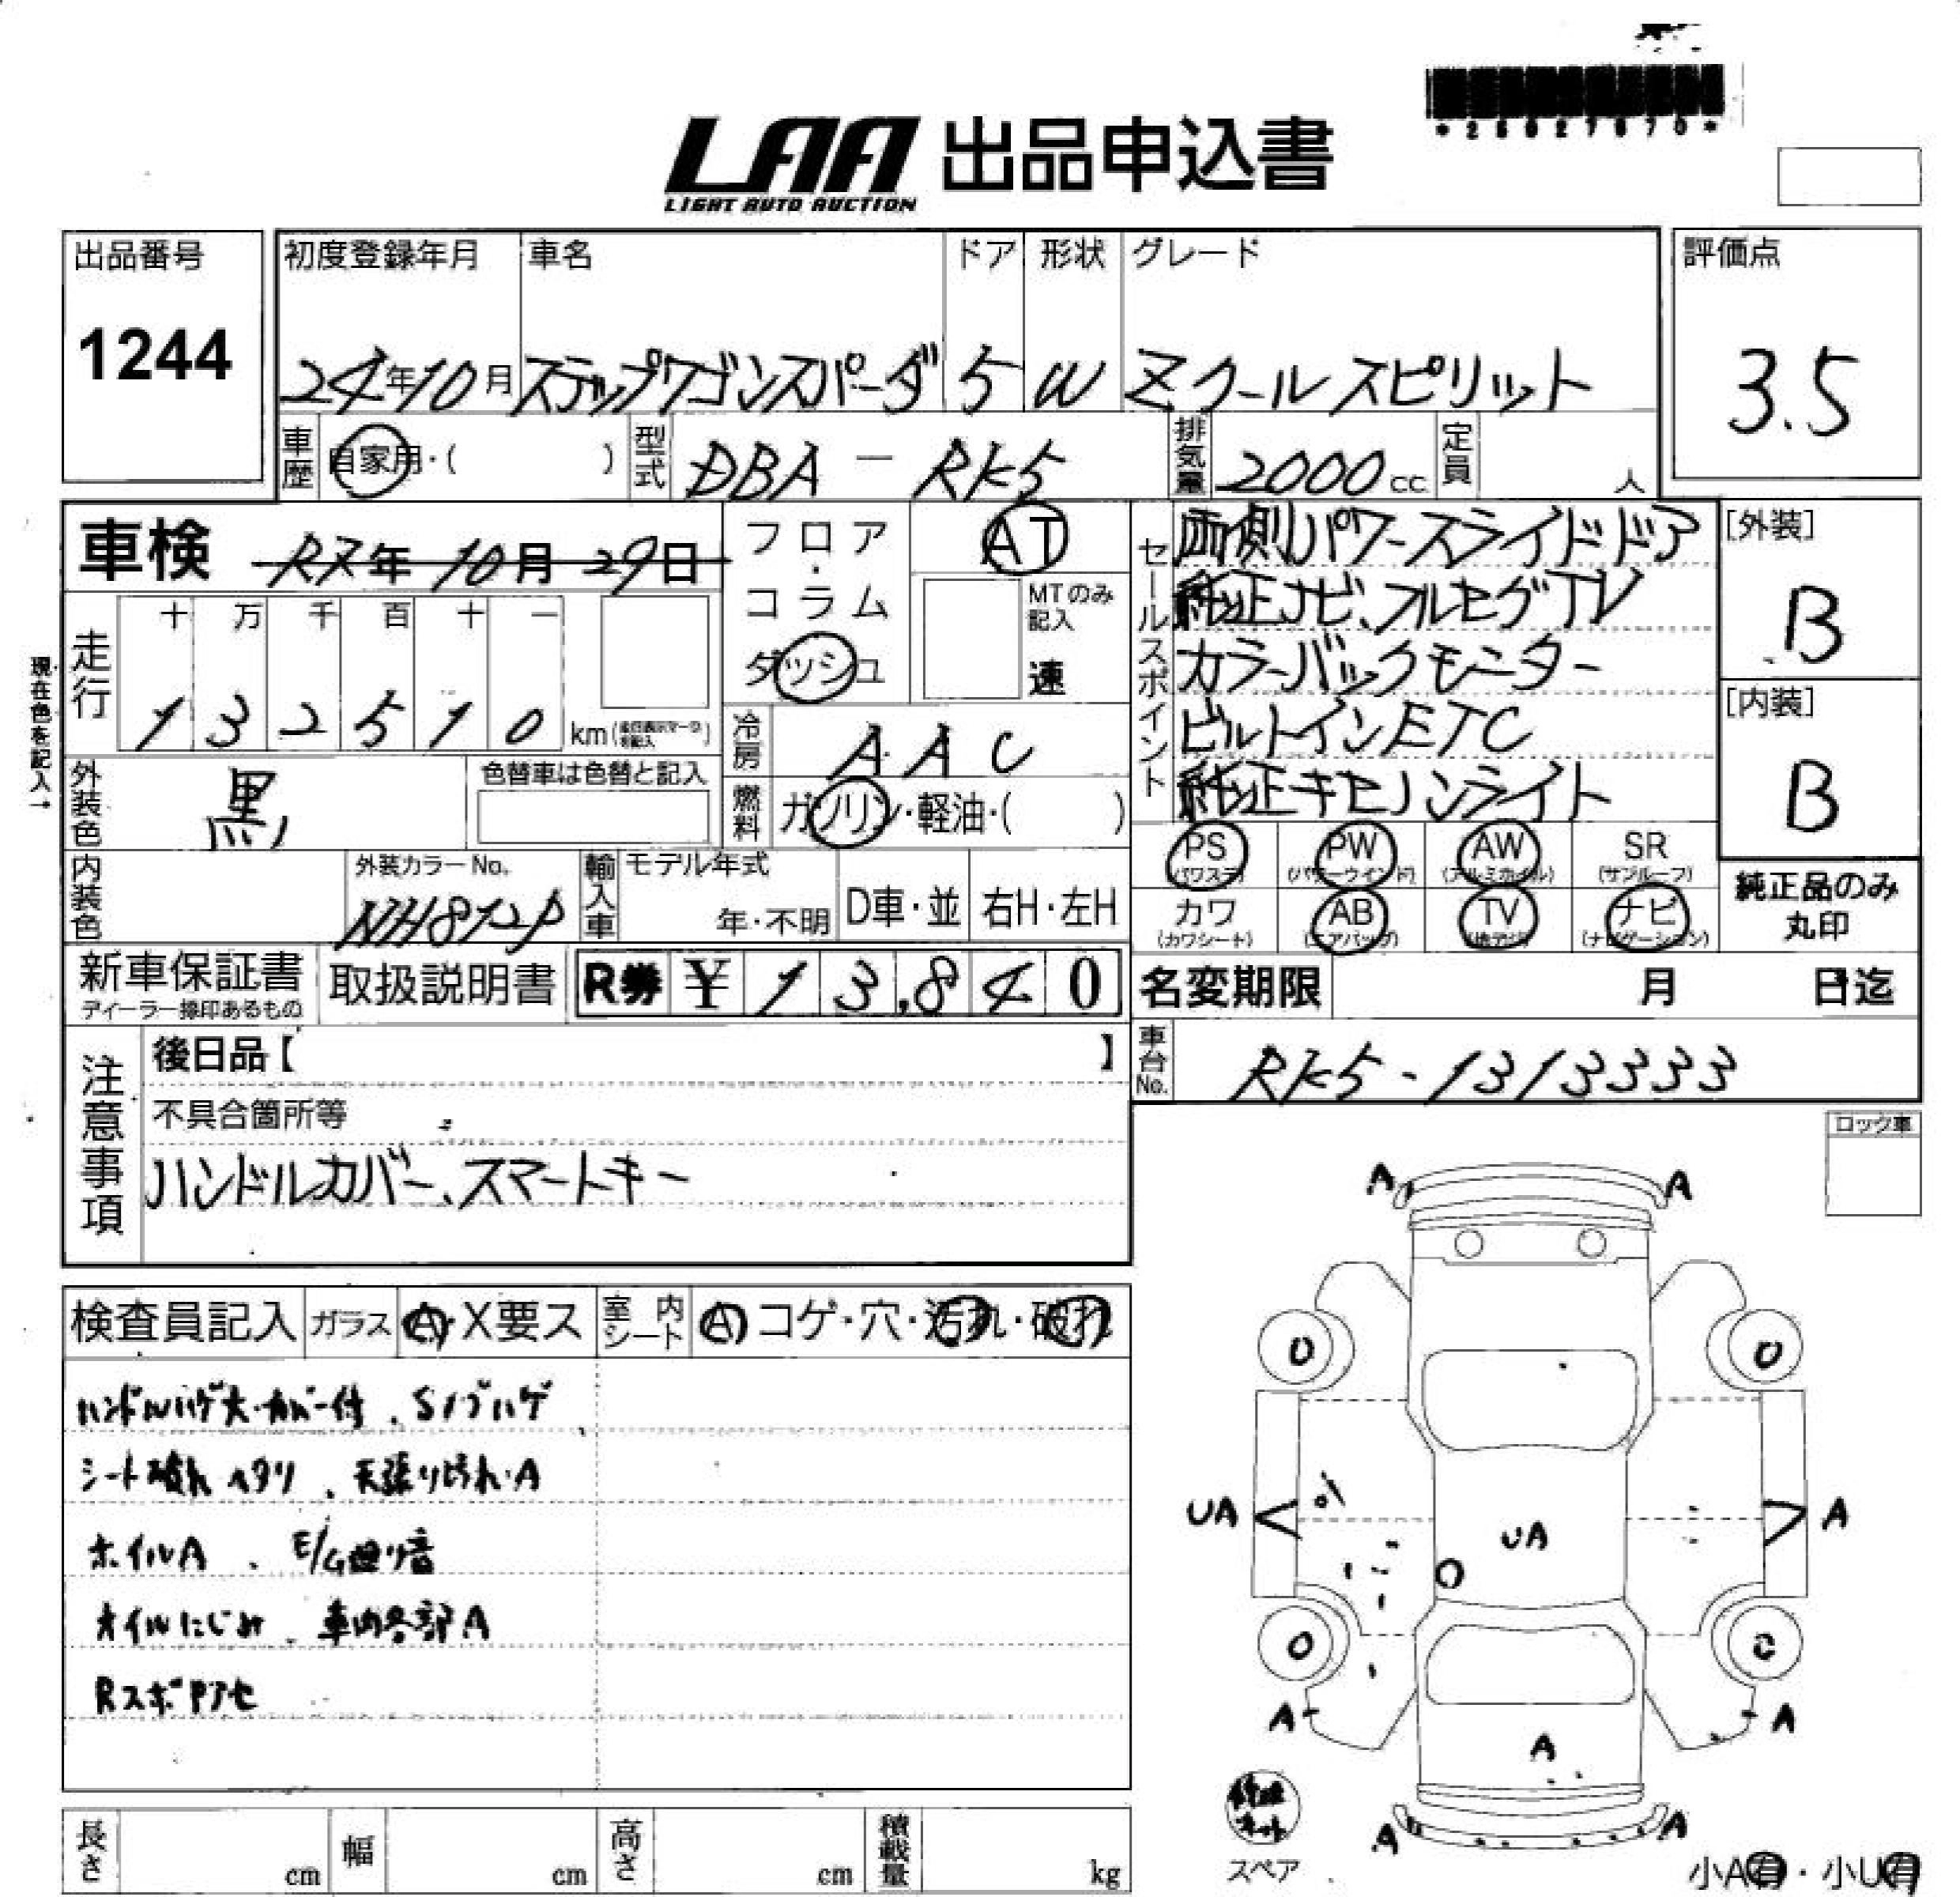 *25027870*
LAA 出品申込書
LIGHT AUTO AUCTION
出品番号
1244
初度登録年月
24年10月
車名
ステップワゴンスパーダ
ドア
5
形状
W
グレード
Z クールスピリット
評価点
3.5
車歴
自家用・( )
型式
DBA - RK5
排気量
2000 cc
定員
人
車検
R7年 10月 29日
フロア・コラム
ダッシュ
AT
MTのみ記入
速
セールスポイント
両側パワースライドドア
純正ナビ、フルセグTV
カラーバックモニター
ビルトインETC
純正キセノンライト
[外装]
B
[内装]
B
現在色を記入→
走行
十 万 千 百 十 一
1 3 2 5 1 0
km
冷房
AAC
外装色
黒
色替車は色替と記入
燃料
ガソリン・軽油・( )
内装色
外装カラーNo.
NH812P
輸入車
モデル年式
年・不明
D車・並
右H・左H
PS
(パワステ)
PW
(パワーウインド)
AW
(アルミホイル)
SR
(サンルーフ)
カワ
(カワシート)
AB
(エアバッグ)
TV
(地デジ)
ナビ
(ナビゲーション)
純正品のみ
丸印
新車保証書
ディーラー捺印あるもの
取扱説明書
R券 ¥ 13,840
名変期限
月 日迄
注意事項
後日品【 】
不具合箇所等
ハンドルカバー、スマートキー
車台No.
RK5-1313333
ロック車
検査員記入
ガラス
A・X要ス
室内シート
A コゲ・穴・汚れ・破れ
ハンドルハゲ大・カバー付、Sノブハゲ
シート破れ ヘタリ、天張り汚れ・A
ホイルA、E/G廻り音
オイルにじみ、車内各部A
RスポPアセ
A A
0 0
UA UA A
0 0
A A
A
A A
修理キット
スペア
小A有・小U有
長さ
cm
幅
cm
高さ
cm
積載量
kg